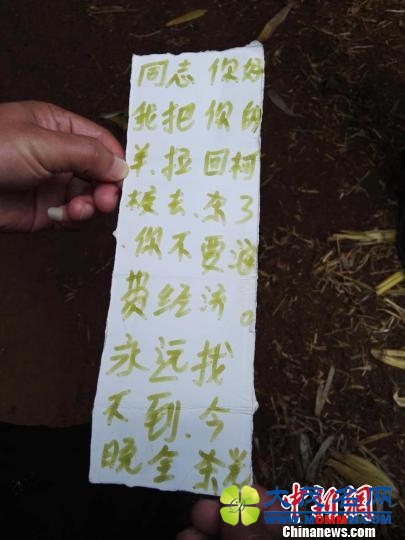 同志.你好
我把你的
羊.拉回柯
桉去.杀了
.你不要浪
费经济。
永远找
不到.今
晚全杀光
中新网
Chinanews.com